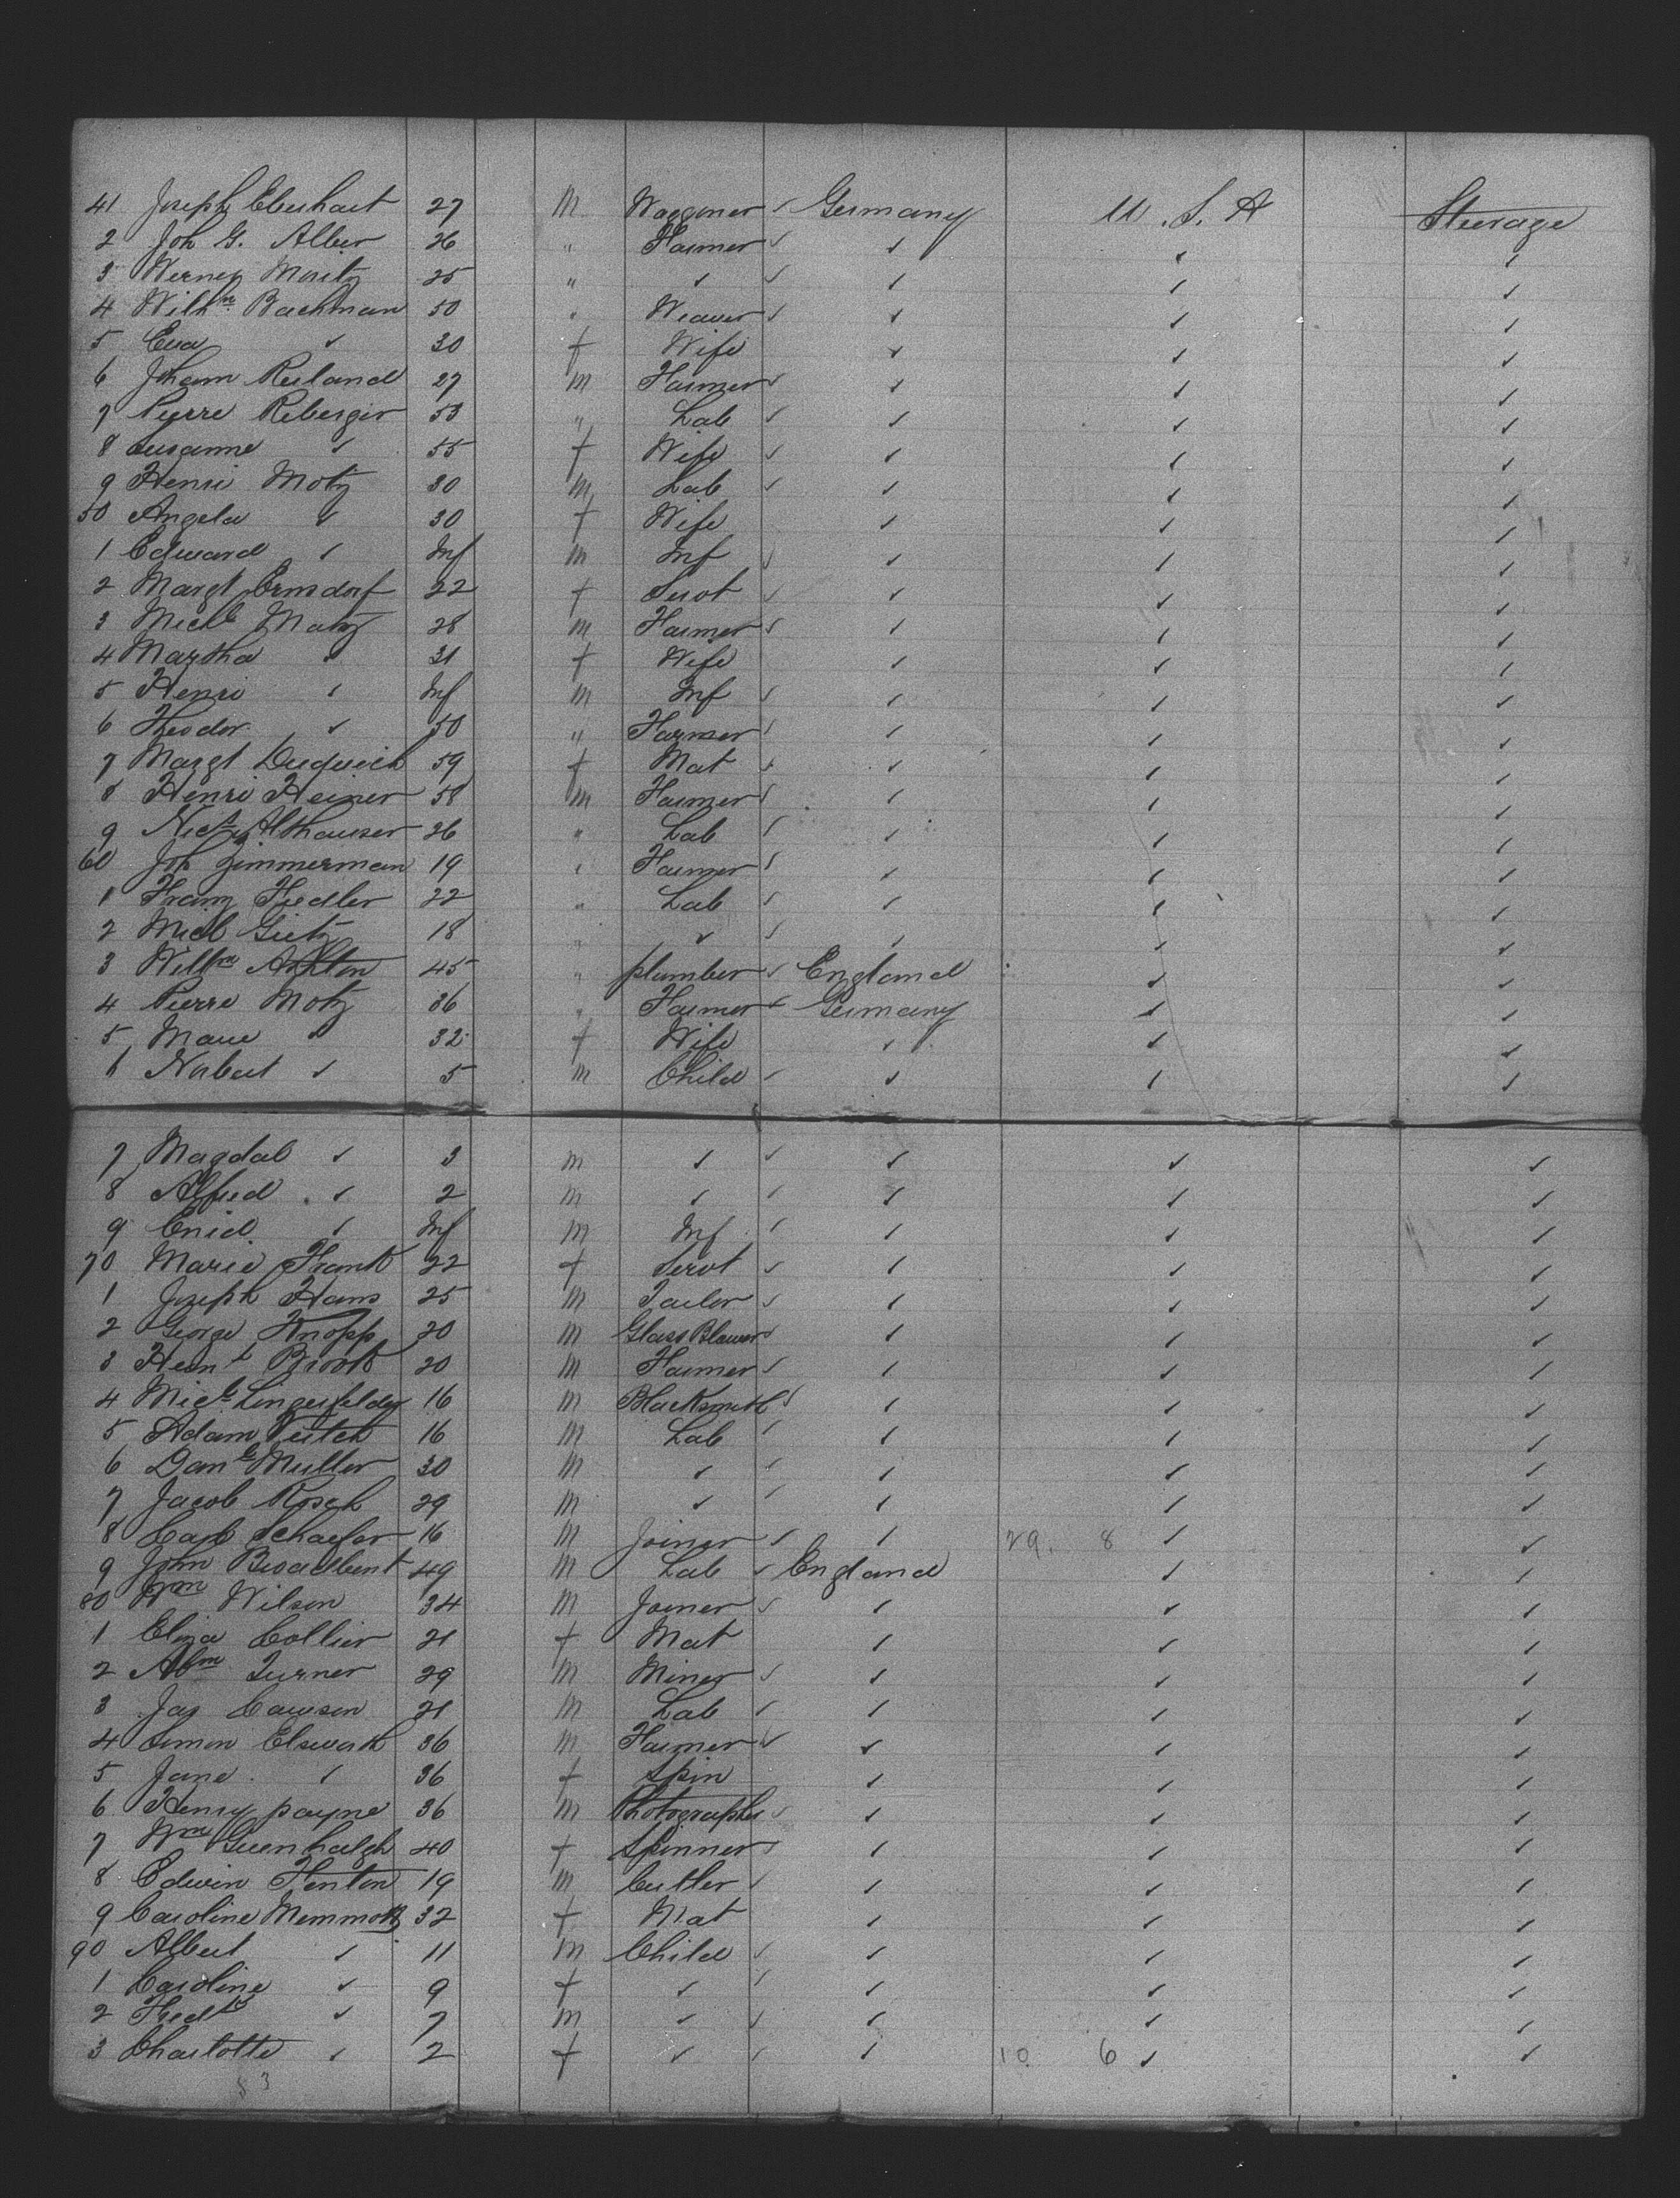 41 Joseph Eberhart 27 M Waggoner ✓ Germany U.S.A Steerage
2 Joh G. Alber 26 " Farmer ✓ ✓ ✓ ✓
3 Werney Moritz 25 " ✓ ✓ ✓ ✓ ✓
4 Wilhm Bachman 50 " Weaver ✓ ✓ ✓ ✓
5 Eva ✓ 30 f Wife ✓ ✓ ✓
6 Johann Reiland 27 m Farmer ✓ ✓ ✓ ✓
7 Pierre Reberger 53 " Lab ✓ ✓ ✓ ✓
8 Susanne ✓ 55 f Wife ✓ ✓ ✓ ✓
9 Henri Motz 30 m Lab ✓ ✓ ✓ ✓
50 Angela ✓ 30 f Wife ✓ ✓ ✓
1 Edward ✓ Inf m Inf ✓ ✓ ✓ ✓
2 Margt Ernsdorf 22 f Servt ✓ ✓ ✓ ✓
3 Michl Matz 28 m Farmer ✓ ✓ ✓ ✓
4 Martha ✓ 31 f Wife ✓ ✓ ✓
5 Henri ✓ Inf m Inf ✓ ✓ ✓ ✓
6 Theodor ✓ 50 " Farmer ✓ ✓ ✓ ✓
7 Margt 59 f Mat ✓ ✓ ✓ ✓
8 Henri Heiner 58 m Farmer ✓ ✓ ✓ ✓
9 Nich Althauser 26 " Lab ✓ ✓ ✓ ✓
60 Joh Zimmerman 19 " Farmer ✓ ✓ ✓ ✓
1 Franz Fiedler 22 " Lab ✓ ✓ ✓ ✓
2 Micl Gietz 18 " ✓ ✓ ✓ ✓ ✓
3 Willm Ashton 45 " plumber ✓ England ✓ ✓
4 Pierre Motz 36 " Farmer ✓ Germany ✓ ✓
5 Marie " 32 f Wife ✓ ✓ ✓
6 Norbert ✓ 5 m Child ✓ ✓ ✓ ✓
7 Magdal ✓ 3 m ✓ ✓ ✓ ✓ ✓
8 Alfred ✓ 2 m ✓ ✓ ✓ ✓ ✓
9 Enid ✓ Inf m Inf ✓ ✓ ✓ ✓
70 Marie Frank 22 f Servt ✓ ✓ ✓ ✓
1 Joseph Hans 25 m Tailor ✓ ✓ ✓ ✓
2 George Knopp 20 m Glass Blower ✓ ✓ ✓ ✓
3 20 m Farmer ✓ ✓ ✓ ✓
4 Micl Lingerfelder 16 m Blacksmith ✓ ✓ ✓ ✓
5 Adam Veitch 16 m Lab ✓ ✓ ✓ ✓
6 Danl Muller 30 m ✓ ✓ ✓ ✓ ✓
7 Jacob Rosch 29 m ✓ ✓ ✓ ✓ ✓
8 Carl Schaefer 16 m Joiner ✓ ✓ 29. 8 ✓ ✓
9 John Broadbent 49 m Lab ✓ England ✓ ✓
80 Wm Wilson 34 m Joiner ✓ ✓ ✓ ✓
1 Eliza Collier 21 f Mat ✓ ✓ ✓
2 Abm Turner 29 m Miner ✓ ✓ ✓ ✓
3 Jas Cawson 21 m Lab ✓ ✓ ✓ ✓
4 Simon Elsworth 36 m Farmer ✓ ✓ ✓ ✓
5 Jane ✓ 36 f Spin ✓ ✓ ✓
6 Henry payne 36 m Photographer ✓ ✓ ✓ ✓
7 Wm Greenhalgh 40 f Spinner ✓ ✓ ✓ ✓
8 Edwin Fenton 19 m Cutler ✓ ✓ ✓ ✓
9 Caroline Memmott 32 f Mat ✓ ✓ ✓
90 Albert ✓ 11 m Child ✓ ✓ ✓ ✓
1 Caroline ✓ 9 f ✓ ✓ ✓ ✓ ✓
2 Fredk ✓ 7 m ✓ ✓ ✓ ✓ ✓
3 Charlotte ✓ 2 f ✓ ✓ ✓ 10 6 ✓ ✓
53